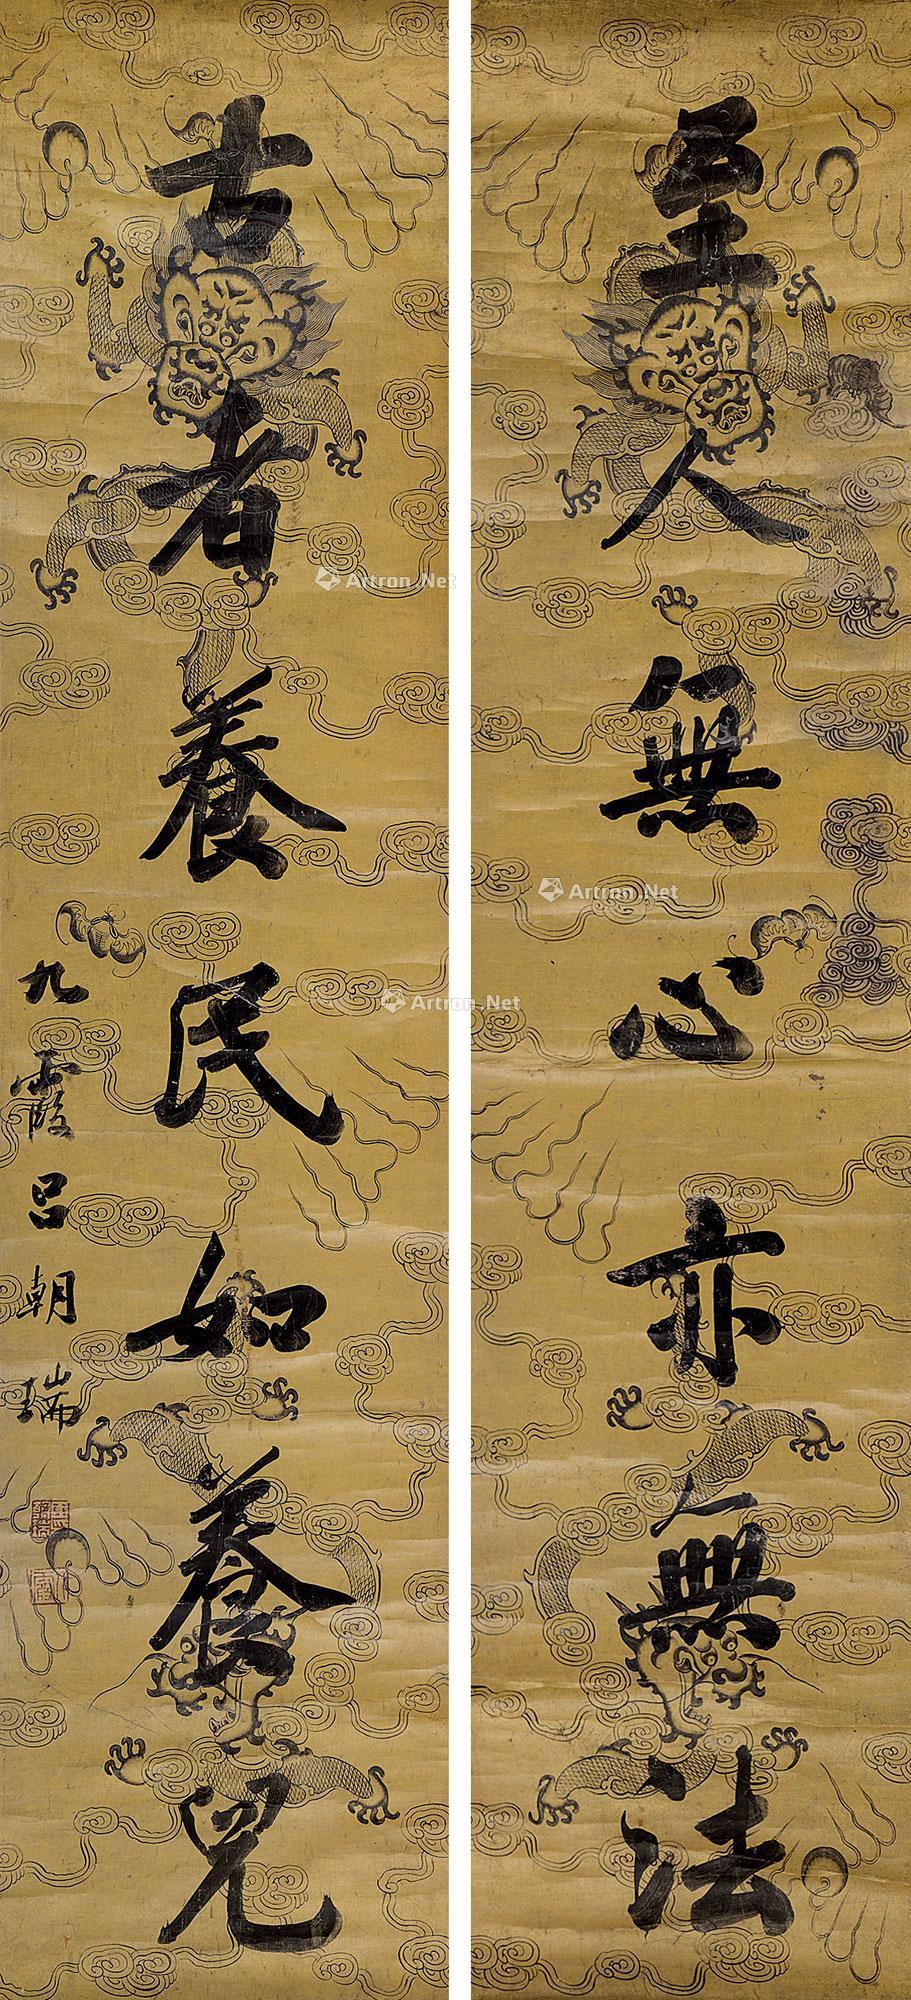 至人無心亦無法
古者養民如養兒
九霞呂朝瑞
Artron.Net
Artron.Net
Artron.Net